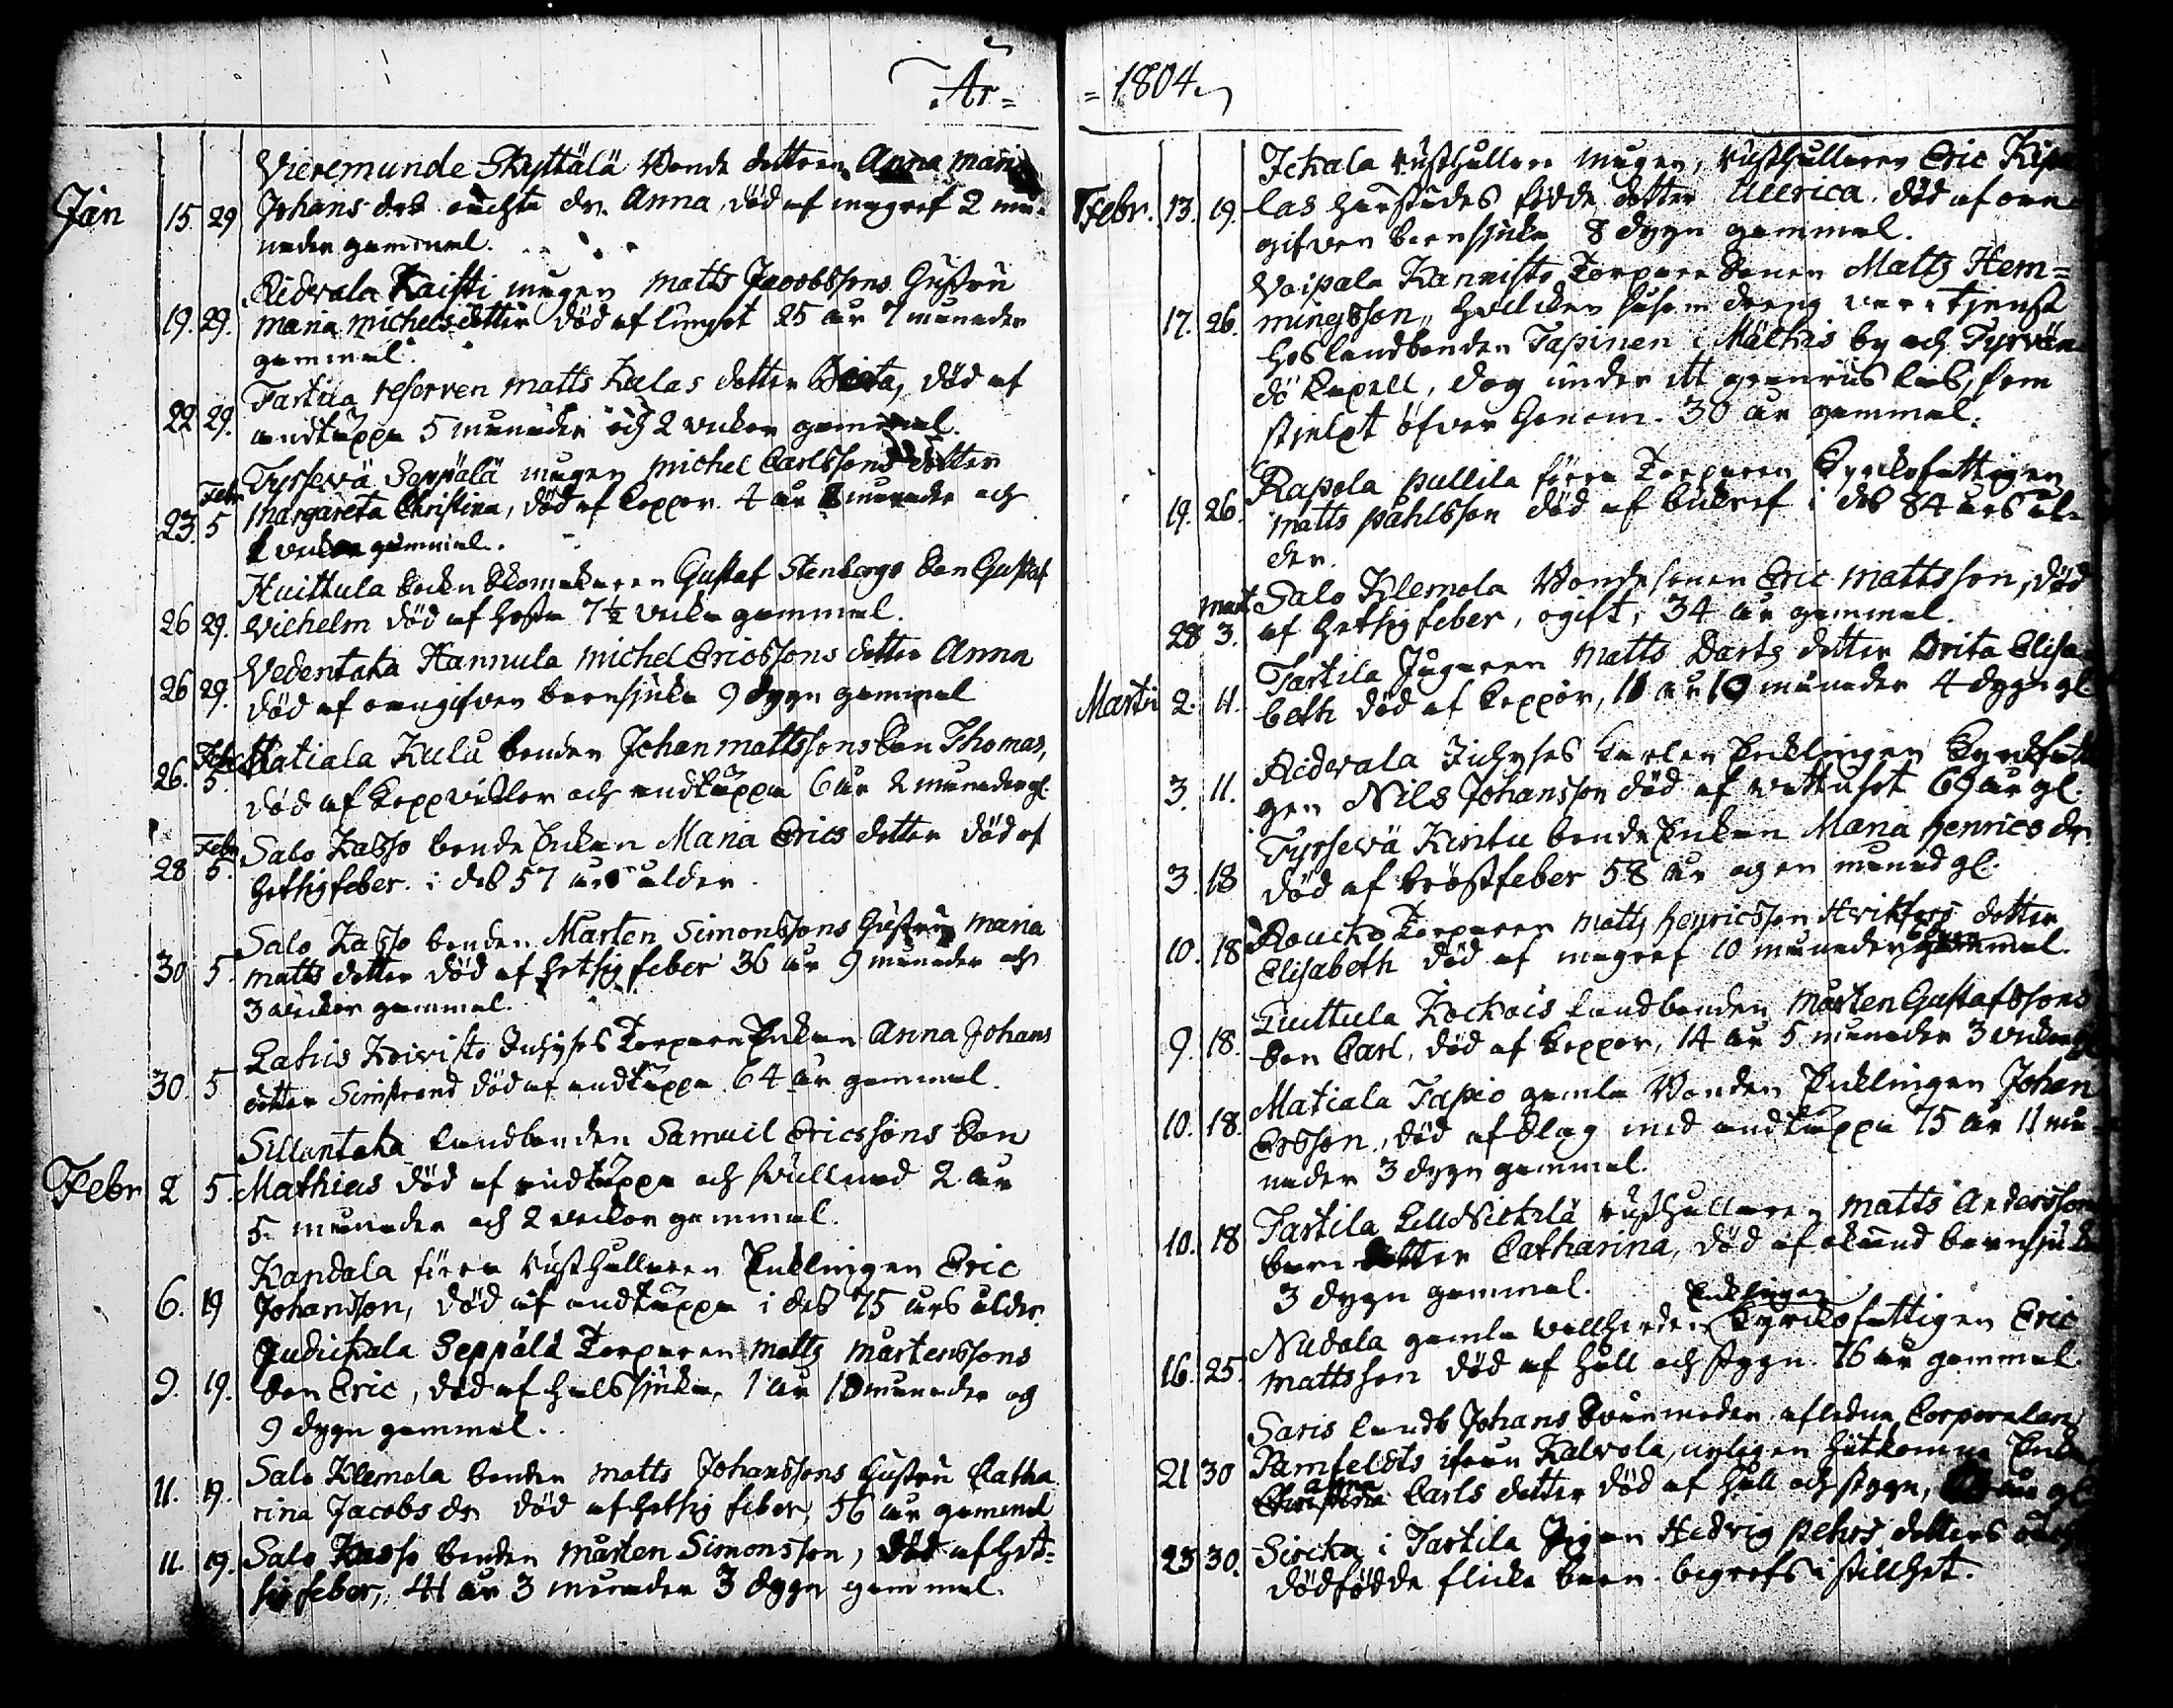 År =
Vieremunde Skyttälä Bonde dottren Anna Maria
Jan 15. 29 Johans drs oächta dr. Anna, död af magref 2 må-
nader gammal.
Ridvala Kaisti mågen Matts Jacobssons Hustru
19. 29. Maria Michelsdotter död af lungsot 25 år 7 månader
gammal.
Tartila reserven Matts Kulas dotter Beata, död af
22 29. andtäppa 5 månader och 2 veckor gammal.
Tyrsevä Seppälä mågen Michel Carlssons dotter
23. Febr 5 Margareta Christina, död af koppor 4 år 8 månader och
veckor gammal.
Huittula Sockn Skomakaren Gustaf Stenbergs Son Gustaf
26 29. Vilhelm död af hosta 7½ vecka gammal.
Vedentaka Hannula Michel Ericssons dotter Anna
26 29. död af oangifven barnsjuka 9 dygn gammal
Matiala Kulu bonden Johan Mattssons Son Thomas,
26. Febr 5. död af koppvådor och andtäppa 6 år 2 månader gl.
Salo Kasso bonde Enkan Maria Erics dotter död af
28 Febr 5. Hetsig feber i des 57 års ålder.
Salo Kasso bonden Mårten Simonssons Hustru Maria
30 5. Matts dotter död af hetsig feber 36 år 9 månader och
3 veckor gammal.
Lahis Koivisto Inhyses Torpare Enkan Anna Johans
30. 5 dotter Simstrand död af andtäppa 64 år gammal.
Sillantaka Landbonden Samuil Ericssons Son
Febr 2 5. Mathias död af andtäppa och svullnad 2 år
5 månader och 2 veckor gammal.
Kandala förra Rusthållaren Enklingen Eric
6. 19 Johansson, död af andtäppa i des 75 års ålder.
Judickala Seppälä Torparen Matts Mårtenssons
9. 19. Son Eric, död af halssjuka, 1 år 10 månader og
9 dygn gammal.
Salo Klemola bonden Matts Johanssons Hustru Catha
11. 19. rina Jacobs dr. död af hetsig feber, 56 år gammal
11. 19. Salo Kasso bonden Mårten Simonsson, död af het=
sig feber, 41 år 3 månader 3 dygn gammal.
= 1804.
Ickala Rusthållare mågen, Rusthållaren Eric Kipa
Febr. 13. 19. las härstädes födde dotter Ulerica. död af oan
gifven barnsjuka 8 dygn gammal.
Voipala Kannisto Torpare Sonen Matts Hem=
17. 26. mingsson, hvilcken såsom dreng var i tjenst
hos landbonden Tapinen i Mälkis by och Tyrvän
dö Capell, dog under ett granris lass, som
stjelpt öfver honom. 30 år gammal.
Rapola Pullila förra Torparen Kyrckofattigen
19. 26. Matts Pahlsson död af bukref i des 84 års ål-
der.
Mart. Salo Klemola Bonde sonen Eric Mattsson, död
28 3. af Hetsig feber, ogift, 34 år gammal.
Tartila Jägaren Matts Darts dotter Brita Elisa
Martii 2. 11. beth död af koppor, 11 år 10 månader 4 dygn gl.
Ridvala Inhyses karlen Enklingen Kyrckofatti
3. 11. gen Nils Johansson död af vattusot 69 år gl.
Tyrsevä Kirstu bonde Enkan Maria Henrics dr.
3. 18 död af bröstfeber 58 år og en månad gl.
Roucko Torparen Matts Henricsson dotter
10. 18. Elisabeth död af magref 10 månader gammal.
Huittula Kockois landbonden Mårten Gustafssons
9. 18. Son Carl, död af koppor, 14 år 5 månader 3 veckor gl
Matiala Tapio gamla Bonden Enklingen Johan
10. 18. Ersson, död af slag med andtäppa 75 år 11 må-
nader 3 dygn gammal.
Tartila Lill Nickilä rusthållaren Matts Andersson
10. 18 barn dotter Catharina, död af okänd barnsjuka
3 dygn gammal.
Enklingen
Nudala gamla vallherden Kyrckofattigen Eric
16. 25. Mattsson död af håll och stygn. 76 år gammal.
Saris landb. Johans Svärmoder afledne Corporalen
21 30 Pamfeldts ifrån Kalvola, nyligen hitkomne Enka
Carls dotter död af håll och stygn, år gl
23 30. Sircka i Tartila Pigan Hedvig Pehrs dotters oäch
dödfödde flicke barn begrofs i stillhet.